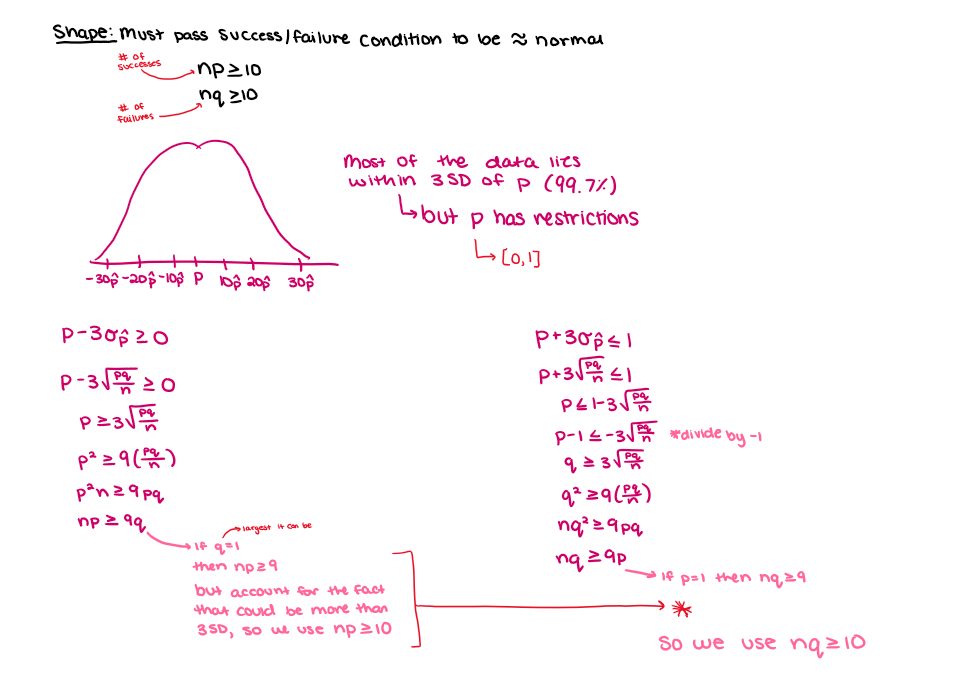 Shape: Must pass success/failure condition to be ≈ normal
# of
successes
np ≥ 10
nq ≥ 10
# of
failures
Most of the data lies
within 3SD of p (99.7%)
but p has restrictions
[0,1]
-3σp̂ -2σp̂ -1σp̂ p 1σp̂ 2σp̂ 3σp̂
p - 3σp̂ ≥ 0
p - 3√(pq/n) ≥ 0
p ≥ 3√(pq/n)
p² ≥ 9(pq/n)
p²n ≥ 9pq
np ≥ 9q
largest it can be
if q=1
then np ≥ 9
but account for the fact
that could be more than
3SD, so we use np ≥ 10
p + 3σp̂ ≤ 1
p + 3√(pq/n) ≤ 1
p ≤ 1 - 3√(pq/n)
p - 1 ≤ -3√(pq/n) *divide by -1
q ≥ 3√(pq/n)
q² ≥ 9(pq/n)
nq² ≥ 9pq
nq ≥ 9p
if p=1 then nq ≥ 9
*
so we use nq ≥ 10